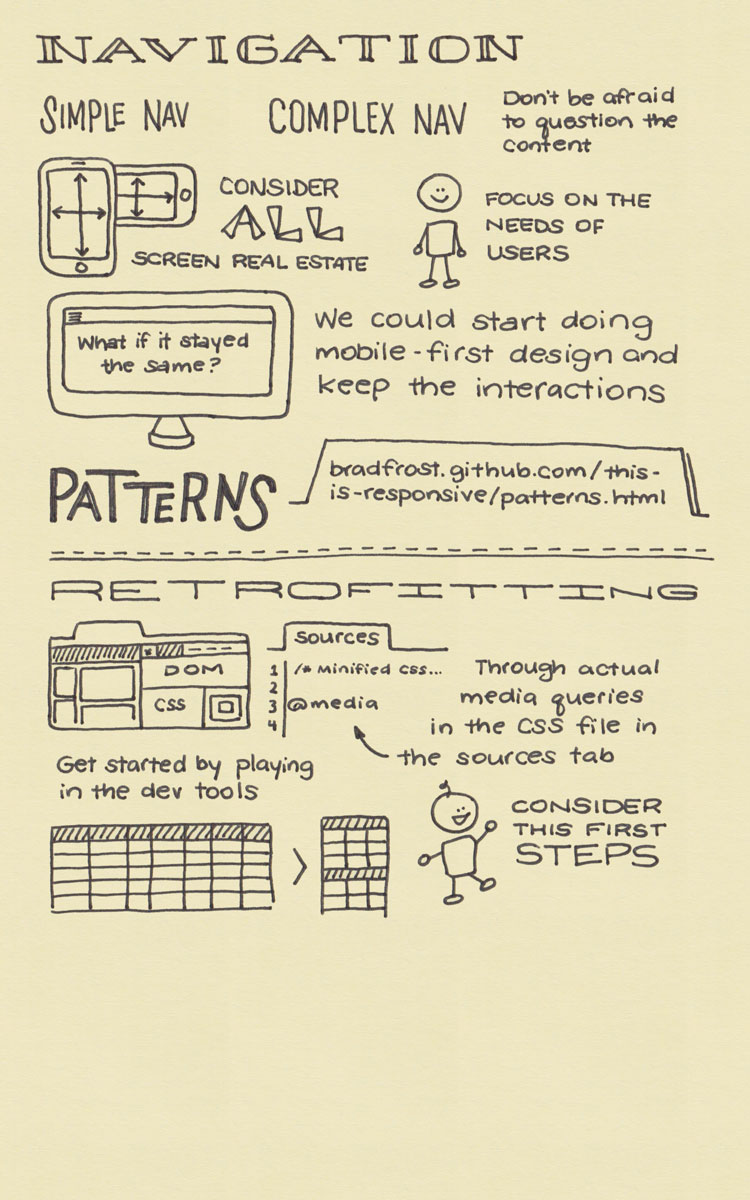 NAVIGATION
SIMPLE NAV
COMPLEX NAV
Don't be afraid
to question the
content
CONSIDER
ALL
SCREEN REAL ESTATE
FOCUS ON THE
NEEDS OF
USERS
What if it stayed
the same?
We could start doing
mobile-first design and
keep the interactions
PATTERNS
bradfrost.github.com/this-
is-responsive/patterns.html
RETROFITTING
DOM
CSS
Sources
1 /* Minified CSS...
2
3 @media
4
Through actual
media queries
in the CSS file in
the sources tab
Get started by playing
in the dev tools
CONSIDER
THIS FIRST
STEPS